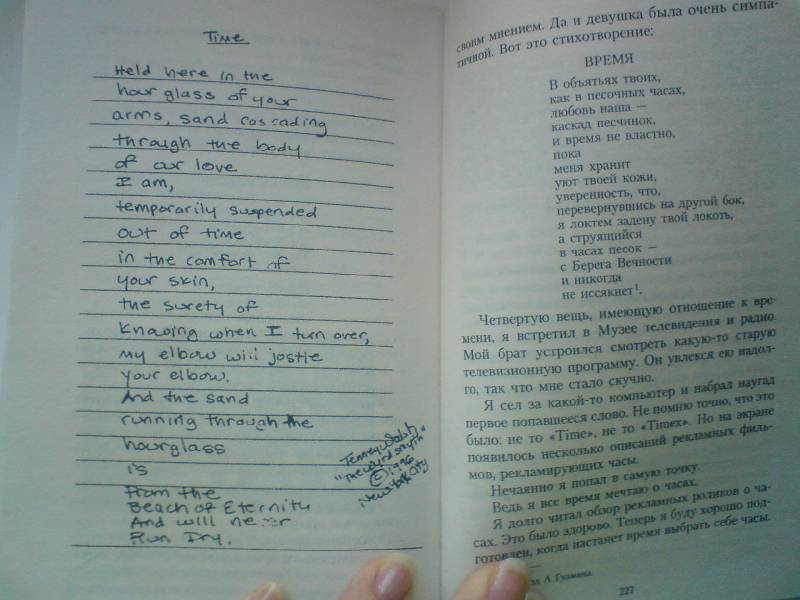 Time
Held here in the
hour glass of your
arms, sand cascading
through the body
of our love
I am,
temporarily suspended
out of time
in the comfort of
your skin,
the surety of
Knowing when I turn over,
my elbow will jostle
your elbow.
And the sand
running through the
hourglass
is
From the
Beach of Eternity
And will never
Run Dry.
"The Wordsmyth"
©1996
New York City
своим мнением. Да и девушка была очень симпа-
тичной. Вот это стихотворение:
ВРЕМЯ
В объятьях твоих,
как в песочных часах,
любовь наша —
каскад песчинок,
и время не властно,
пока
меня хранит
уют твоей кожи,
уверенность, что,
перевернувшись на другой бок,
я локтем задену твой локоть,
а струящийся
в часах песок —
с Берега Вечности
и никогда
не иссякнет¹.
Четвертую вещь, имеющую отношение к вре-
мени, я встретил в Музее телевидения и радио.
Мой брат устроился смотреть какую-то старую
телевизионную программу. Он увлекся ею надол-
го, так что мне стало скучно.
Я сел за какой-то компьютер и набрал наугад
первое попавшееся слово. Не помню точно, что это
было: не то «Time», не то «Timex». Но на экране
появилось несколько описаний рекламных филь-
мов, рекламирующих часы.
Нечаянно я попал в самую точку.
Ведь я все время мечтаю о часах.
Я долго читал обзор рекламных роликов о ча-
сах. Это было здорово. Теперь я буду хорошо под-
готовлен, когда настанет время выбрать себе часы.
А. Гузмана.
227